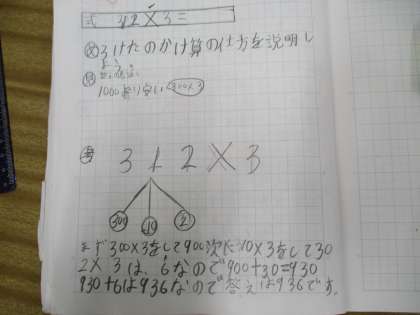 式 312×3=
め 3けたのかけ算の仕方を説明し
よう。
見
1000より安い 300×3
考 312×3
300 10 2
まず300×3をして900次に10×3をして30
2×3は、6なので900+30=930
930+6は936なので答えは936です。